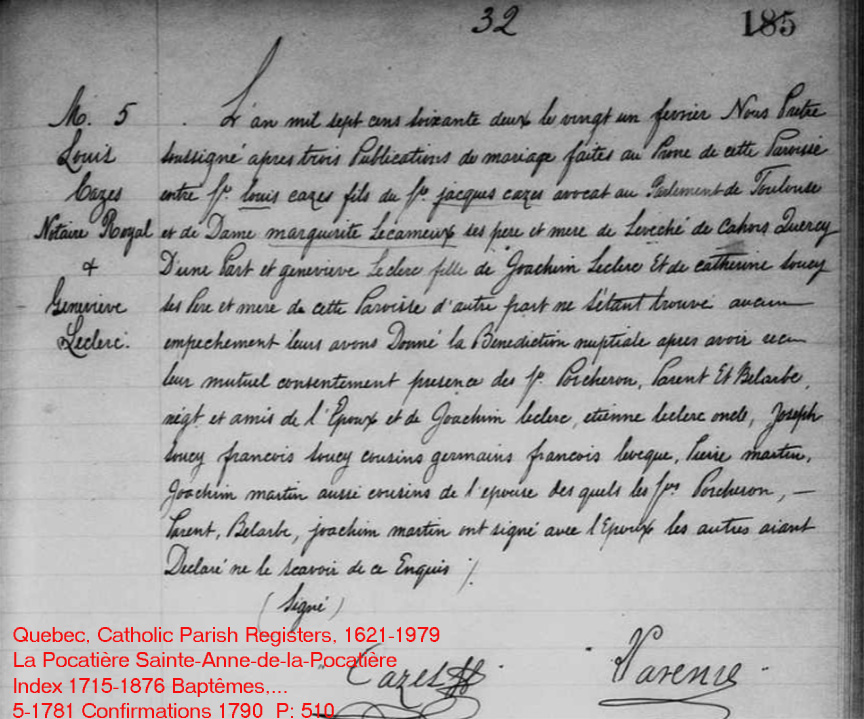 32
185
M. 5
Louis
Cazes
Notaire Royal
+
Genevieve
Leclerc.
L'an mil sept cens soixante deux le vingt un fevrier Nous Pretre
soussigné apres trois Publications de mariage faites au Prone de cette Paroisse
entre Sr. louis cazes fils du Sr. jacques cazes avocat au Parlement de Toulouse
et de Dame marguerite Lecameux ses pere et mere de Leveché de Cahors Quercy
D'une Part et genevieve Leclerc fille de Joachim Leclerc Et de catherine soucy
ses Pere et mere de cette Paroisse d'autre part ne s'étant trouvé aucun
empechement leurs avons Donné la Benediction nuptiale apres avoir recu
leur mutuel consentement presence des Sr. Porcheron, Parent Et Belarbe,
négt et amis de l'Epoux et de Joachim leclerc, etienne leclerc oncle, Joseph
soucy francois soucy cousins germains francois leveque, Pierre martin,
Joachim martin aussi cousins de l'epouse des quels les Srs Porcheron, —
Parent, Belarbe, joachim martin ont signé avec l'Epoux les autres aiant
Declaré ne le scavoir de ce Enquis ./.
(signé)
Cazes
Varense
Quebec, Catholic Parish Registers, 1621-1979
La Pocatière Sainte-Anne-de-la-Pocatière
Index 1715-1876 Baptêmes,...
5-1781 Confirmations 1790 P: 510